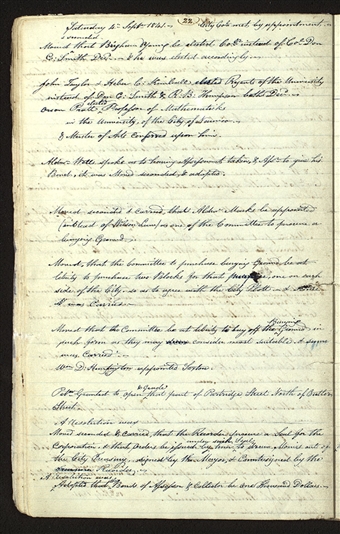 Saturday 4th Septr. 1841. 22 City Col. met by appointment,
seconded
Moved that Brigham Young be elected Co.r instead of Co.r Don
C. Smith Dec.d & he was elected accordingly.
John Taylor & Heber C. Kimball elected Regents of the University
instead of Don C. Smith & R. B. Thompson both Dec.d
elected
Orson Pratt Professor of Mathematics
in the University of the City of Nauvoo
& Master of Arts conferred upon him.
Alder. Wells spoke as to having Assessment taken, & Assr. to give his
Bond, it was Moved seconded & adopted.
Moved seconded & carried, that Alder. Marks be appointed
instead of as one of the Committee to procure a
Burying Ground
Moved, that the Committee to purchase burying Ground be at
liberty to purchase two Blocks for that purpose, one on each
side of the City so as to agree with the City Plott
was Carried
Burying
Moved that the Committee be at liberty to lay off the Ground in
such form as they may consider most suitable & same
was carried
Wm. D. Huntington appointed Sexton
Petn. Granted to open that part of Partridge Street North of
Street.
A Resolution was
Moved seconded & carried that the Recorder procure a Seal for the
Corporation, & that Orders be issued to draw Monies out of
the City Treasury, signed by the Mayor, & Countersigned by the
Recorder.
A resolution was
Adopted that Bonds of Assessor & Collector be one thousand Dollars.